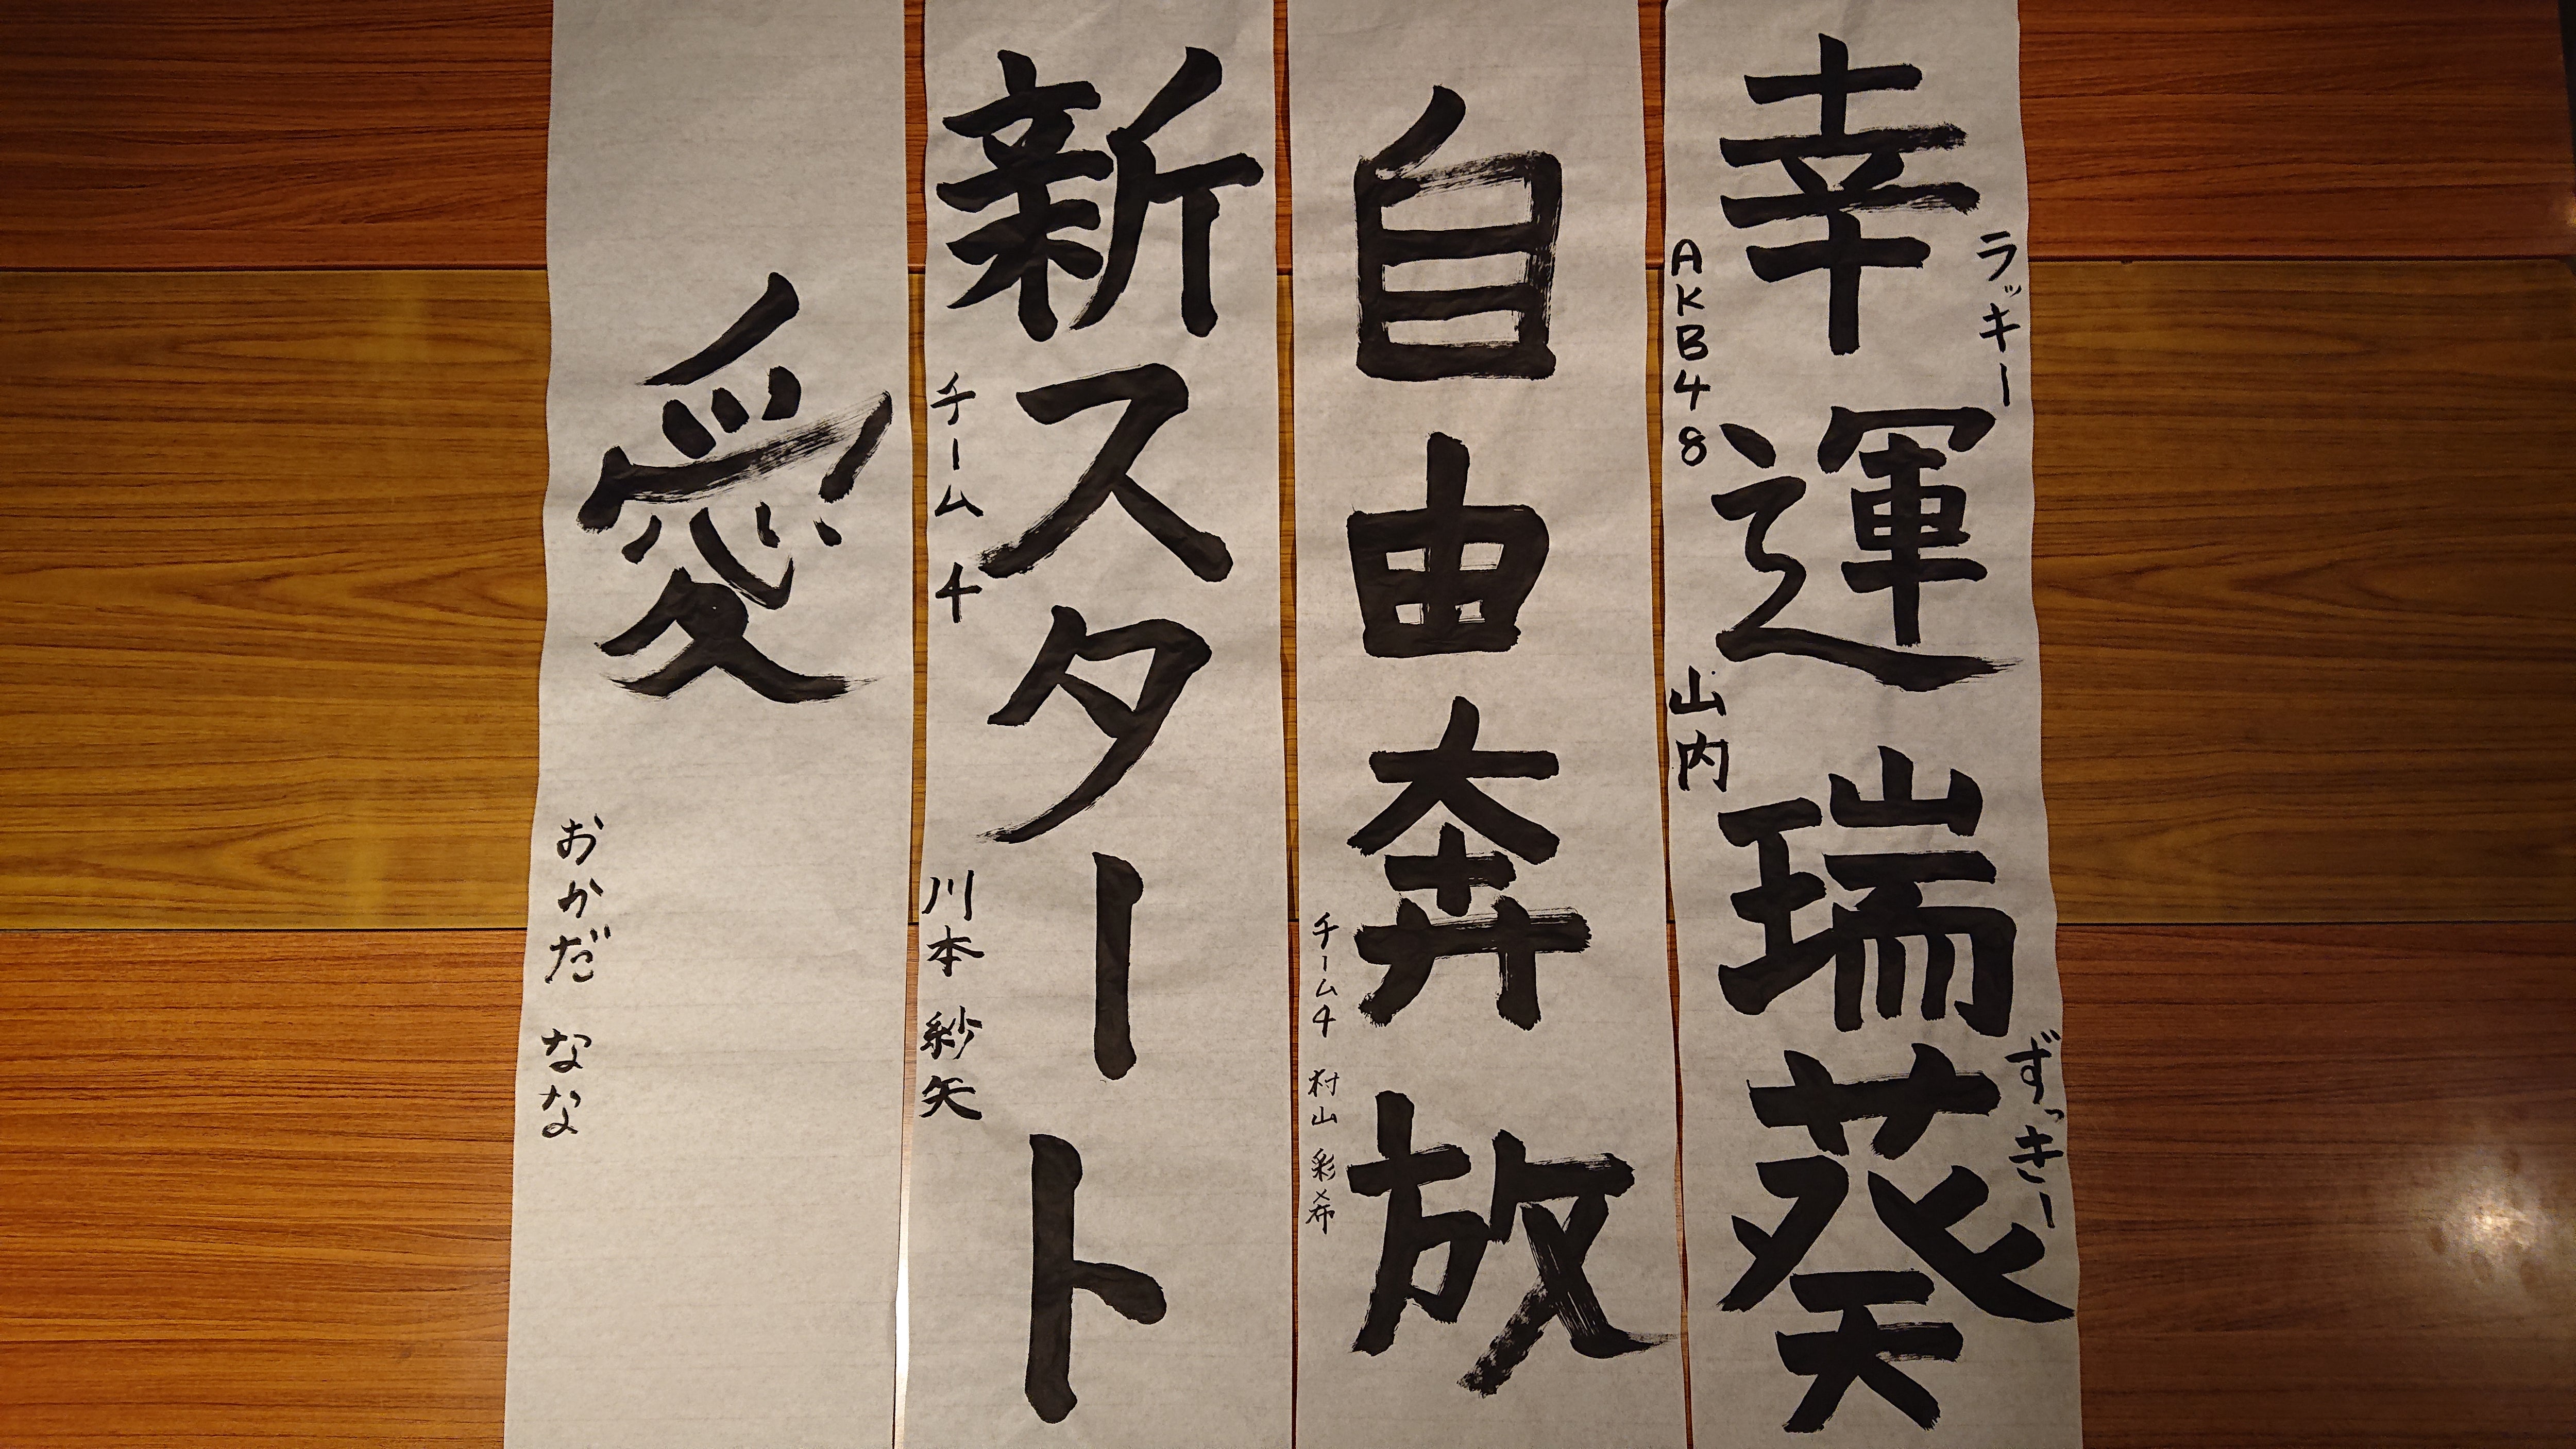 幸運瑞葵
ラッキー
ずっきー
AKB48 山内
自由奔放
チーム4 村山 彩希
新スタート
チーム4 川本 紗矢
愛
おかだ なな